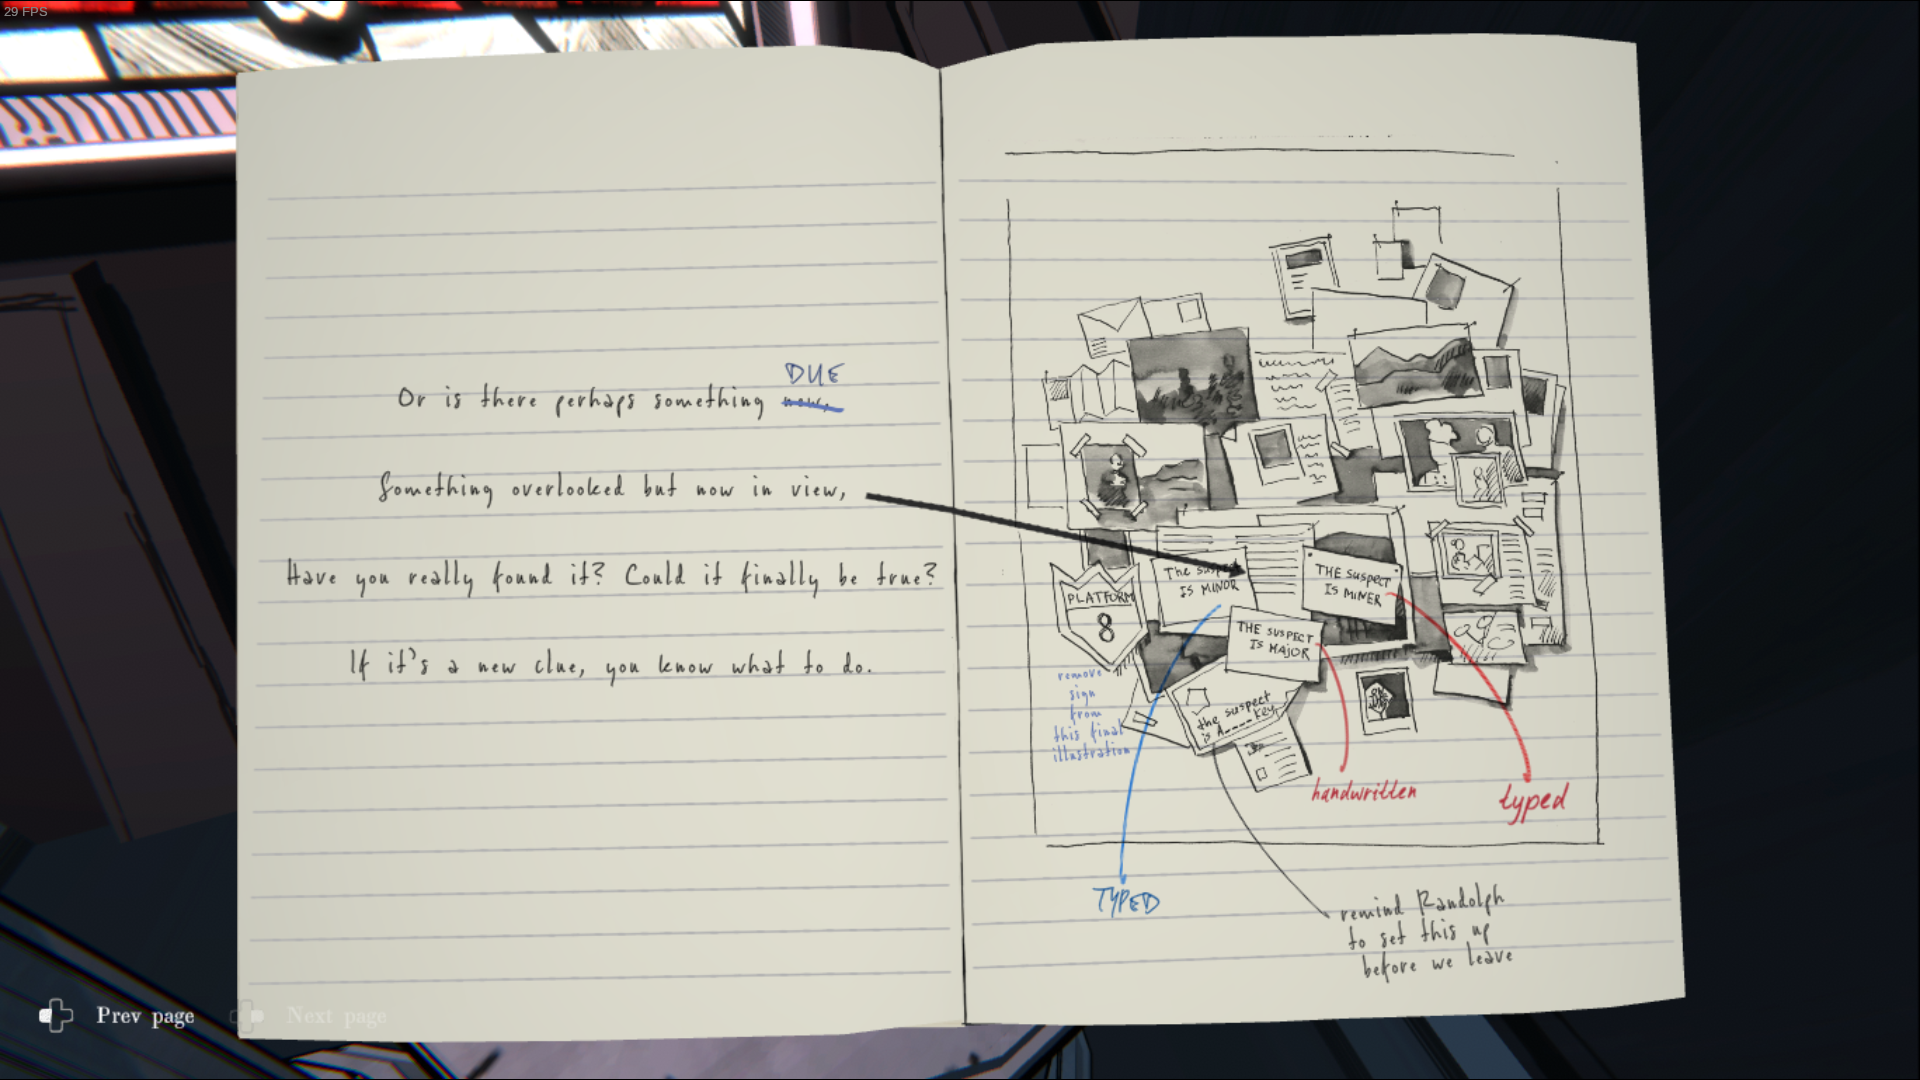 29 FPS
DUE
Or is there perhaps something new,
Something overlooked but now in view,
Have you really found it? Could it finally be true?
If it's a new clue, you know what to do.
PLATFORM
8
The suspect
IS MINOR
THE suspect
IS MINER
THE SUSPECT
IS MAJOR
the suspect
is A____ key
remove
sign
from
this final
illustration
handwritten
typed
TYPED
remind Randolph
to set this up
before we leave
Prev page
Next page